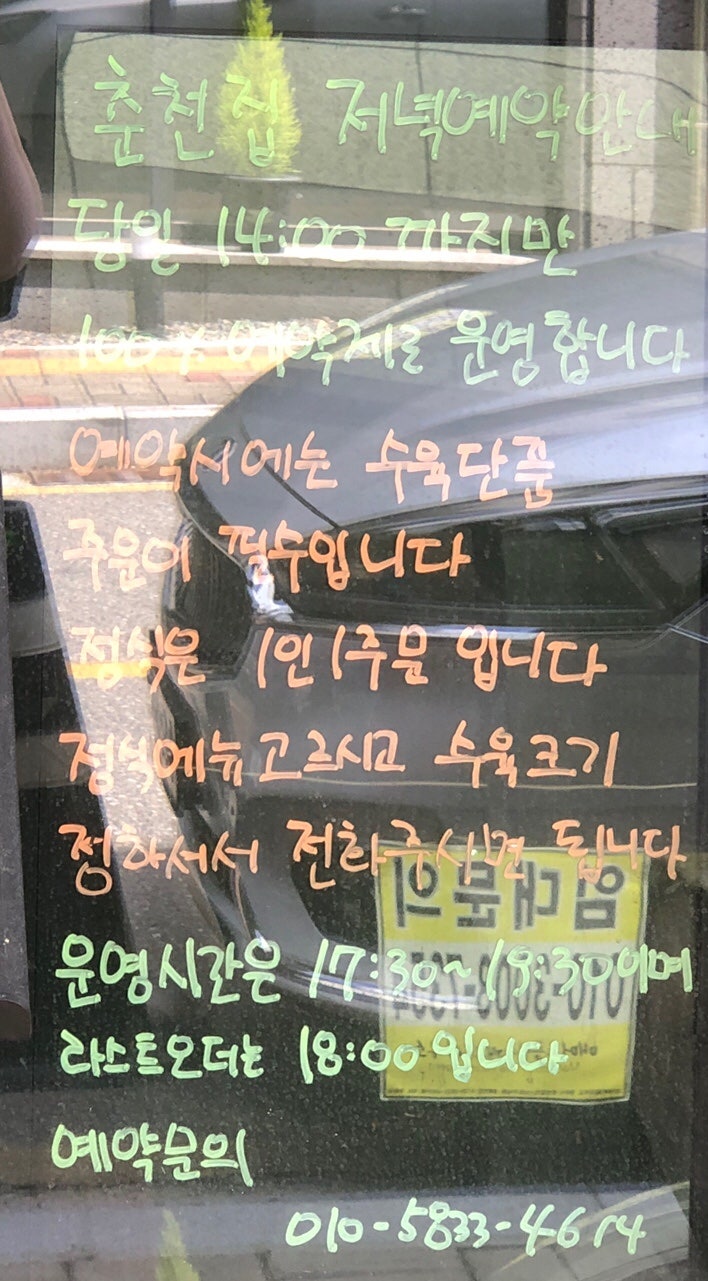 춘천집 저녁예약안내
당일 14:00 까지만
100% 예약제로 운영합니다
예약시에는 수육단품
주문이 필수입니다
정식은 1인1주문 입니다
정식메뉴고르시고 수육크기
정하셔서 전화주시면 됩니다
운영시간은 17:30~19:30이며
라스트오더는 18:00입니다
예약문의
010-5833-4614
임대문의